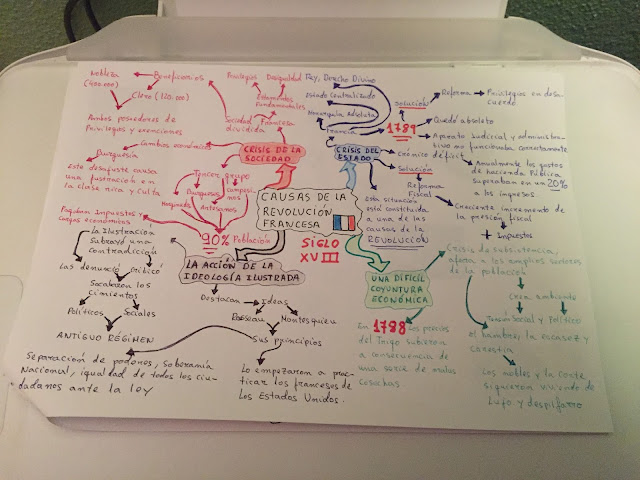 Nobleza
(400.000)
Beneficiarios
Clero (120.000)
Ambos poseedores de
Privilegios y exenciones
Privilegios
Desigualdad
Estamentos
Fundamentales
Sociedad
dividida
Francesa
Cambios económicos
CRISIS DE LA
SOCIEDAD
Burguesía
Este desajuste causa
una frustración en
la clase rica y culta
Tercer grupo
Burgueses
Campesinos
Artesanos
Pagaban Impuestos y
Cargas económicas
90% Población
Rey, Derecho Divino
Estado Centralizado
Monarquía Absoluta
Francia
CRISIS DEL
ESTADO
SOLUCIÓN
1789
Reforma
Privilegios en desa-
cuerdo.
Quedó obsoleto
Aparato Judicial y administra-
tivo no funcionaba correctamente
Crónico
déficit
Anualmente los gastos
de hacienda Pública
superaban en un 20%
a los ingresos
Solución
Reforma
Fiscal
Creciente incremento de
la presión fiscal
+ Impuestos
Esta situación
está constituida
a una de las
causas de la
REVOLUCIÓN
CAUSAS DE LA
REVOLUCIÓN
FRANCESA
SIGLO
XVIII
LA ACCIÓN DE LA
IDEOLOGÍA ILUSTRADA
La Ilustración
Subrayó una
contradicción
Las denunció
criticó
Socavaron los
Cimientos
Políticos
Sociales
ANTIGUO RÉGIMEN
Destacan
Ideas
Montesquieu
Sus principios
Separación de poderes, soberanía
Nacional, igualdad de todos los ciu-
dadanos ante la ley
Lo empezaron a prac-
ticar los franceses de
Los Estados Unidos.
UNA DIFÍCIL
COYUNTURA
ECONÓMICA
En 1788 Los precios
del Trigo subieron
a consecuencia de
una serie de malas
cosechas
Crisis de subsistencia,
afectan a los amplios sectores
de la población
Crea ambiente
Tensión Social y Político
el hambre, la escasez y
carestía
Los nobles y la corte
siguieron viviendo de
Lujo y despilfarro